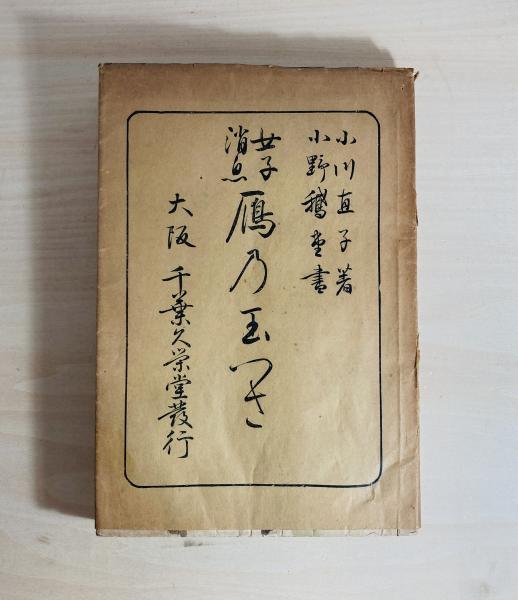 小川直子著
小野鵞堂書
女子
消息
鴈乃玉つさ
大阪 千葉久栄堂發行